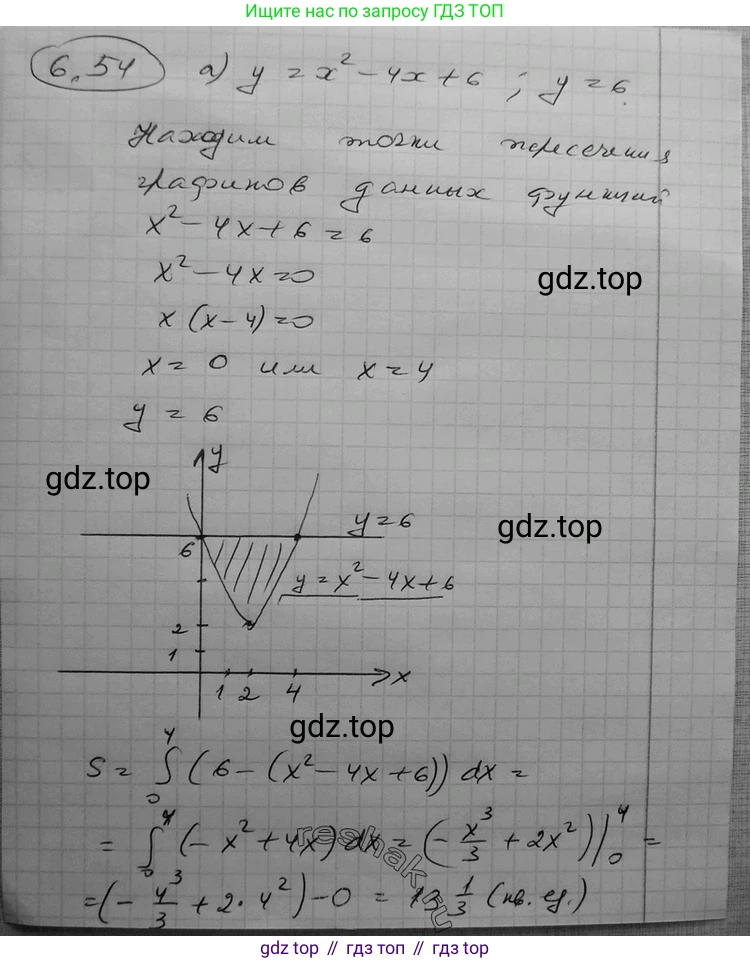 Ищите нас по запросу ГДЗ ТОП
6.54 а) y = x² - 4x + 6 ; y = 6.
Находим точки пересечения
графиков данных функций
x² - 4x + 6 = 6
x² - 4x = 0
gdz.top
x (x - 4) = 0
x = 0 или x = 4
y = 6
y
gdz.top
y = 6
gdz.top
6
y = x² - 4x + 6
2
1
1 2 4 x
gdz.top
S = ∫₀⁴ (6 - (x² - 4x + 6)) dx =
= ∫₀⁴ (- x² + 4x) dx = (- x³/3 + 2x²) |₀⁴ =
reshak.ru
= (- 4³/3 + 2 · 4²) - 0 = 13 1/3 (кв. ед.)
gdz top // гдз топ // гдз.top